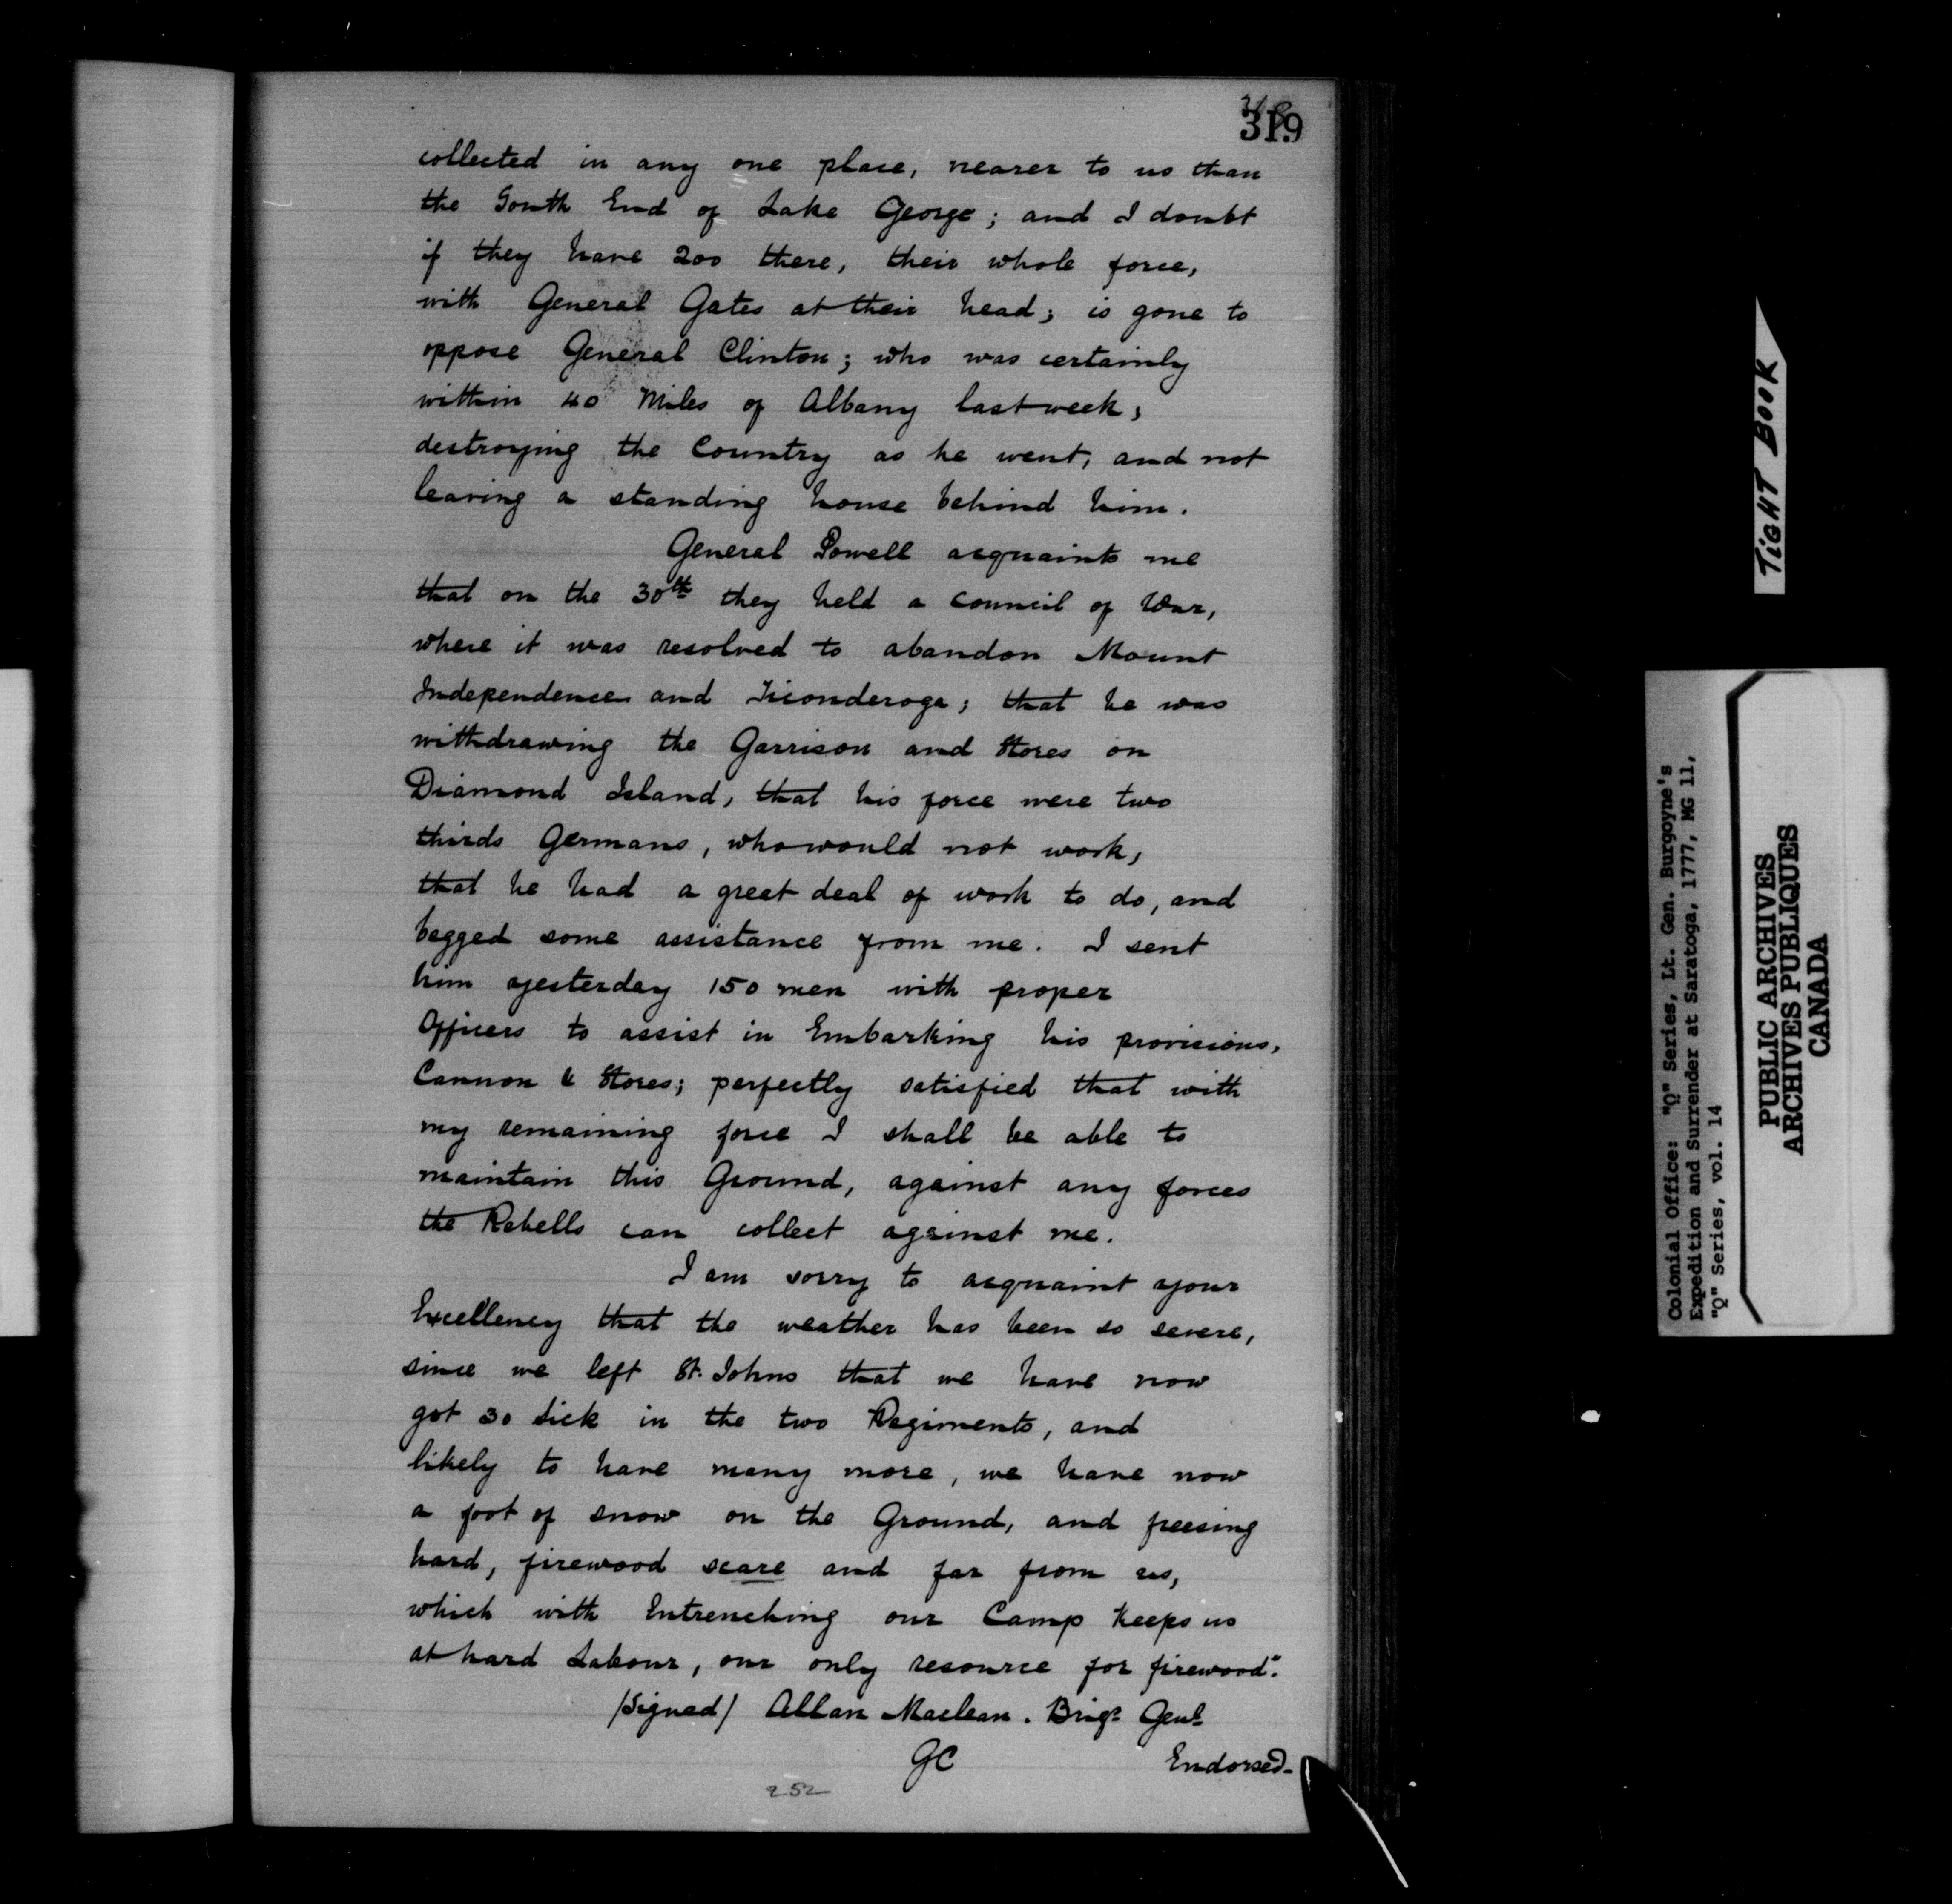 319
collected in any one place, nearer to us than
the South End of Lake George; and I doubt
if they have 200 there, their whole force,
with General Gates at their head; is gone to
oppose General Clinton; who was certainly
within 40 Miles of Albany last week;
destroying the Country as he went, and not
leaving a standing house behind him.
General Powell acquaints me
that on the 30th they held a Council of War,
where it was resolved to abandon Mount
Independence and Ticonderoga; that he was
withdrawing the Garrison and Stores on
Diamond Island, that his force were two
thirds Germans, who would not work,
that he had a great deal of work to do, and
begged some assistance from me. I sent
him yesterday 150 men with proper
Officers to assist in Embarking his provisions,
Cannon & Stores; perfectly satisfied that with
my remaining force I shall be able to
maintain this Ground, against any forces
the Rebells can collect against me.
I am sorry to acquaint your
Excellency that the weather has been so severe,
since we left St. Johns that we have now
got 30 sick in the two Regiments, and
likely to have many more, we have now
a foot of snow on the Ground, and freesing
hard, firewood scare and far from us,
which with Intrenching our Camp keeps us
at hard Labour, our only resource for firewood."
/Signed/ Allan Maclean. Brigr Genl
GC
Endorsed-
252
TIGHT BOOK
Colonial Office: "Q" Series, Lt. Gen. Burgoyne's
Expedition and Surrender at Saratoga, 1777, MG 11,
"Q" Series, vol. 14
PUBLIC ARCHIVES
ARCHIVES PUBLIQUES
CANADA